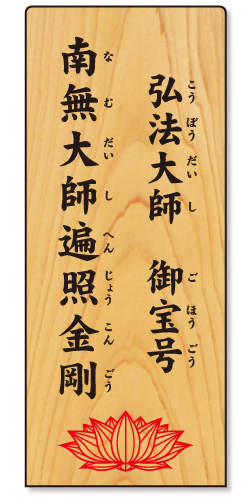 弘法大師 御宝号
こうぼうだいし ごほうごう
南無大師遍照金剛
なむだいしへんじょうこんごう